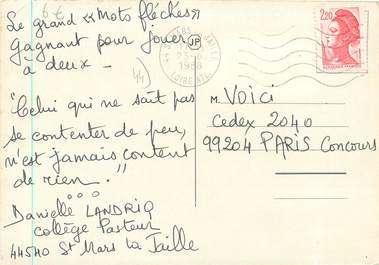 6€
Le grand "Mots fléchés"
Gagnant pour jouer
à deux -
44
"Celui qui ne sait pas
se contenter de peu,
n'est jamais content
de rien."
Danielle LANDRIQ
collège Pasteur
44540 St Mars la Jaille
JP
1988
LOIRE ATL.
2,20
M. VOICI
Cedex 2040
99204 PARIS Concours